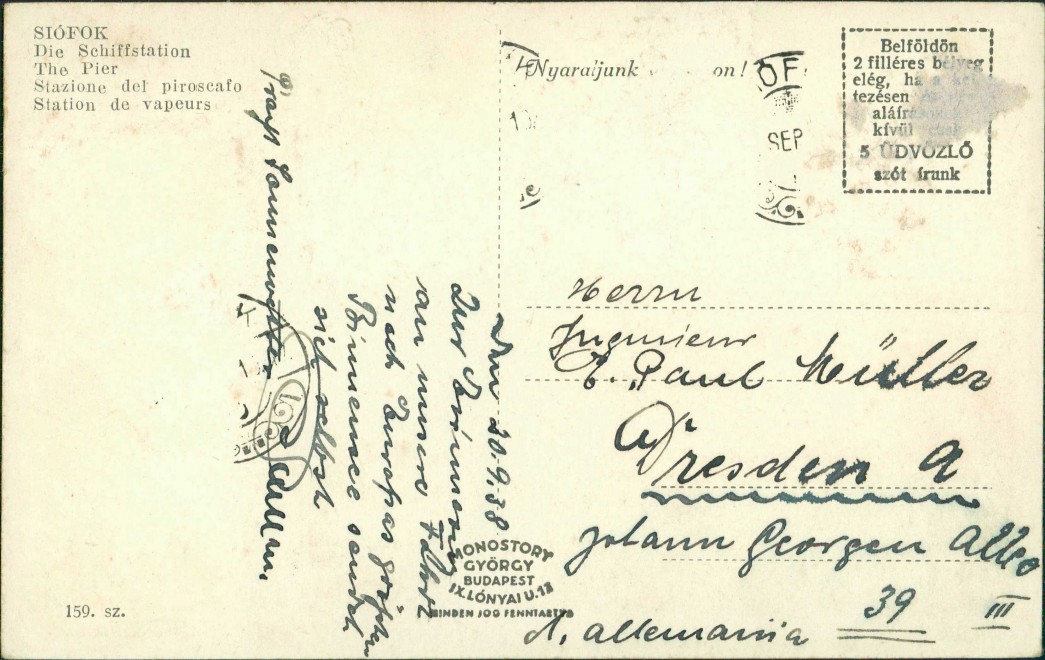 SIÓFOK
Die Schiffstation
The Pier
Stazione del piroscafo
Station de vapeurs
Nyaraljunk on!
OF
SEP
Belföldön
2 filléres bélyeg
elég, ha a
tezésen
aláírás
kívül
5 ÜDVÖZLŐ
szót írunk
Den 20.9.38
Zur Erinnerung
an unsere Fahrt
nach Europas größten
Binnensee sendet
sich selbst
Herrn
Ingenieur
E. Paul Müller
Dresden A
Johann Georgen Allee
39 III
A. allemania
MONOSTORY
GYÖRGY
BUDAPEST
IX. LÓNYAI U. 12
MINDEN JOG FENNTARTVA
159. sz.